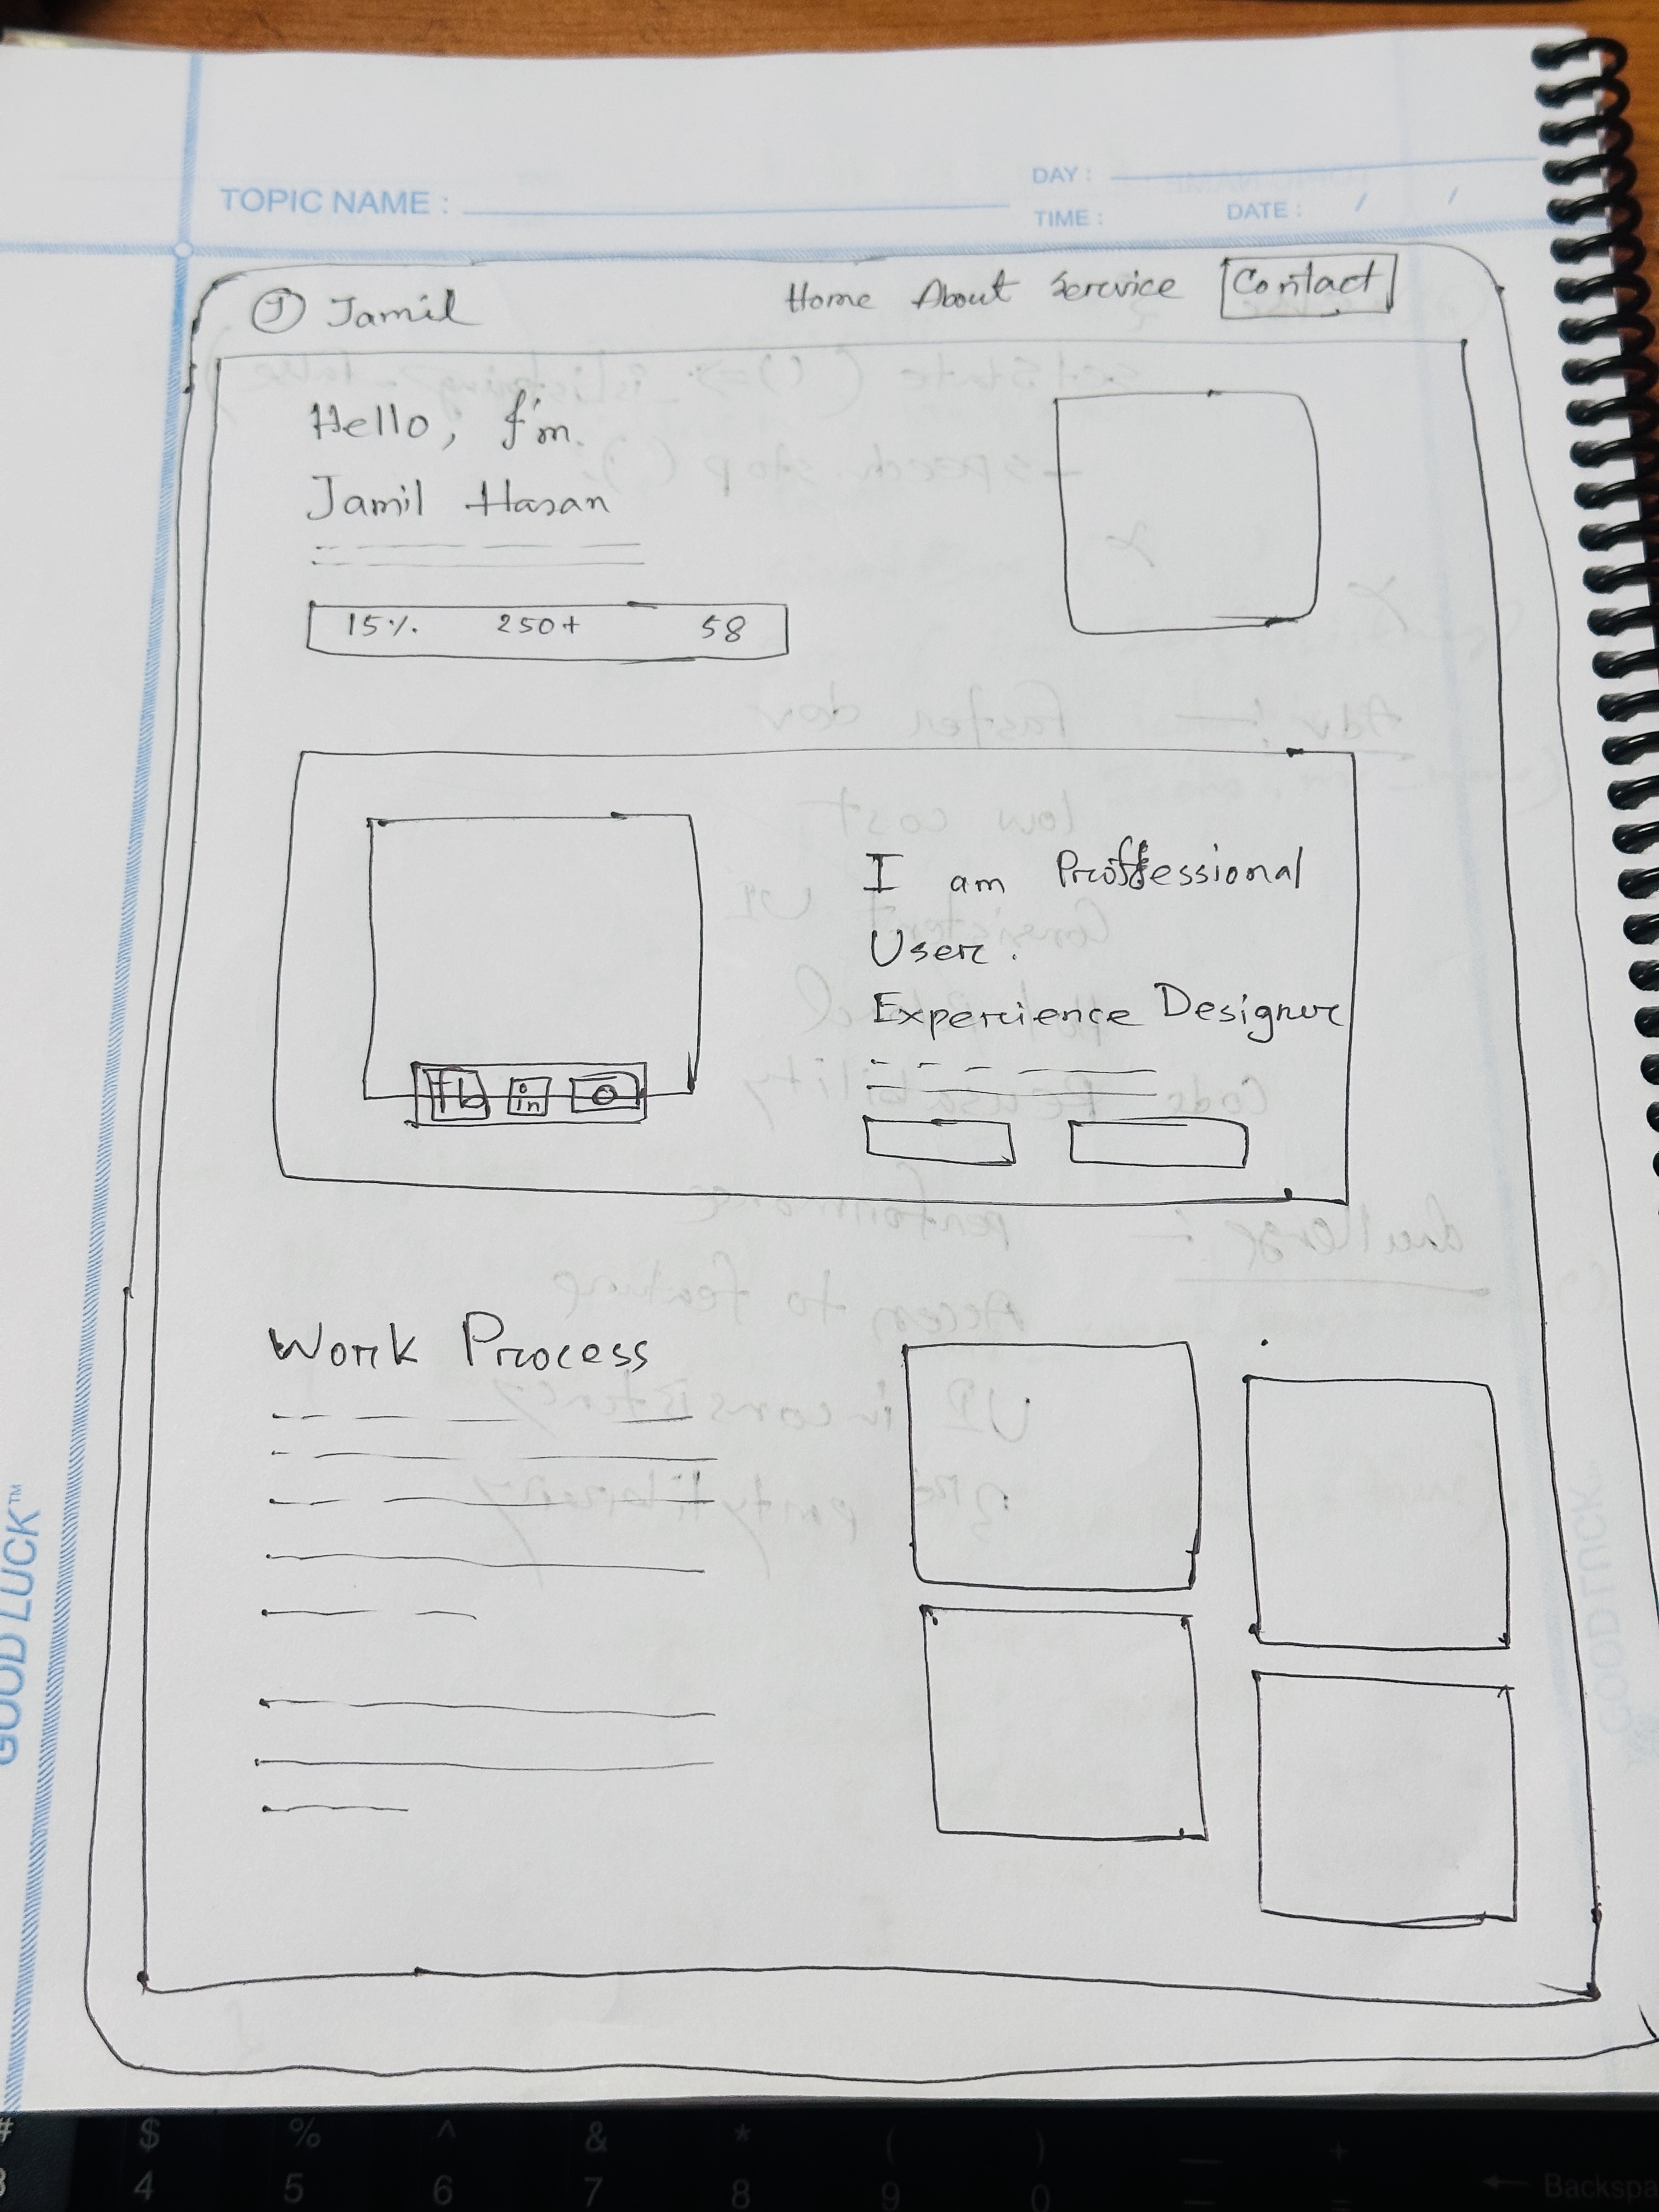 TOPIC NAME :
DAY :
TIME :
DATE : / /
J Jamil
Home About Service Contact
Hello, I'm.
Jamil Hasan
15% 250+ 58
I am Proffessional
User.
Experience Designer
fb in
Work Process
GOOD LUCK™
# $ % ^ & * ( ) — +
3 4 5 6 7 8 9 0 — =
← Backspa